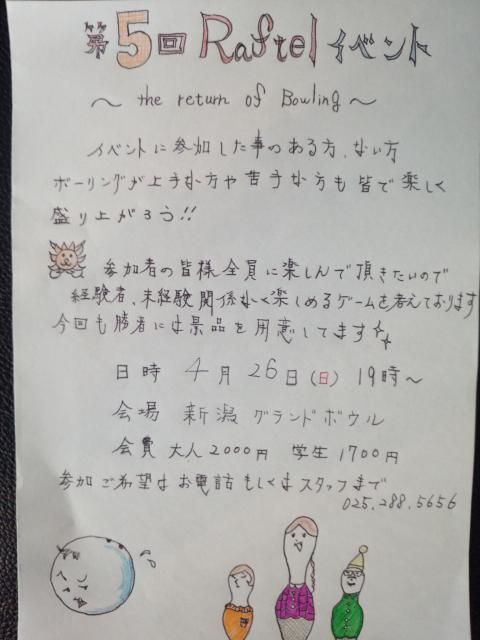 第5回 Raftel イベント
～ the return of Bowling ～
イベントに参加した事のある方、ない方
ボーリングが上手な方や苦手な方も皆で楽しく
盛り上がろう!!
参加者の皆様全員に楽しんで頂きたいので
経験者、未経験関係なく楽しめるゲームを考えております
今回も勝者には景品を用意してます
日時 4月 26日(日) 19時～
会場 新潟 グランドボウル
会費 大人 2000円 学生 1700円
参加ご希望はお電話もしくはスタッフまで
025.288.5656